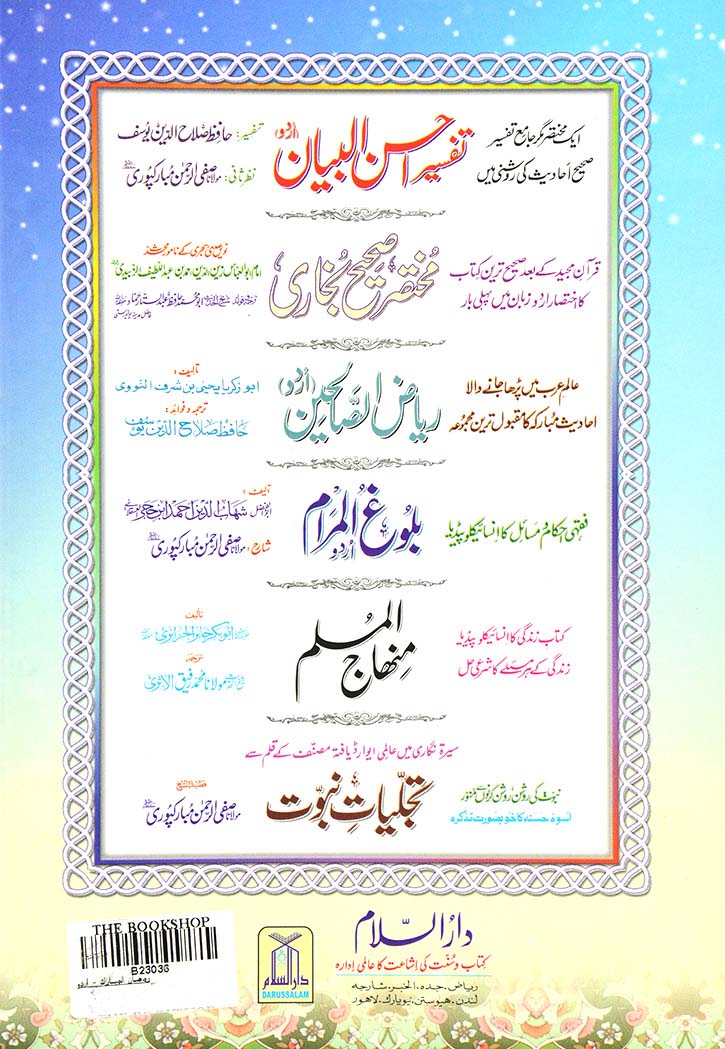 ایک مختصر مگر جامع تفسیر
صحیح احادیث کی روشنی میں
تفسیر احسن البیان (اردو)
تفسیر: حافظ صلاح الدین یوسف
نظرثانی: مولانا صفی الرحمٰن مبارکپوری
قرآن مجید کے بعد صحیح ترین کتاب
کا اختصار اردو زبان میں پہلی بار
مختصر صحیح بخاری
نویں صدی ہجری کے نامور محدث
امام ابوالعباس زین الدین احمد بن عبداللطیف الزبیدی
عالم عرب میں پڑھا جانے والا
احادیث مبارکہ کا مقبول ترین مجموعہ
ریاض الصالحین (اردو)
تالیف:
ابو زکریا یحییٰ بن شرف النووی
ترجمہ و فوائد:
حافظ صلاح الدین یوسف
فقہی احکام و مسائل کا انسائیکلوپیڈیا
بلوغ المرام
اردو
تالیف:
ابوالفضل شہاب الدین احمد ابن حجر
شارح: مولانا صفی الرحمٰن مبارکپوری
کتاب زندگی کا انسائیکلوپیڈیا
زندگی کے ہر مسئلے کا شرعی حل
منہاج المسلم
تالیف
ابوبکر جابر الجزائری
ترجمہ
مولانا محمد رفیق الاثری
سیرۃ نگاری میں عالمی ایوارڈ یافتہ مصنف کے قلم سے
نبوت کی روشن روشن کرنوں سے منور
اسوۂ حسنہ کا خوبصورت تذکرہ
تجلیات نبوت
مولانا صفی الرحمٰن مبارکپوری
دارالسلام
کتاب و سنت کی اشاعت کا عالمی ادارہ
ریاض۔ جدہ۔ الخبر۔ شارجہ
لندن۔ ہیوسٹن۔ نیویارک۔ لاہور
دارالسلام
DARUSSALAM
THE BOOKSHOP
B23036